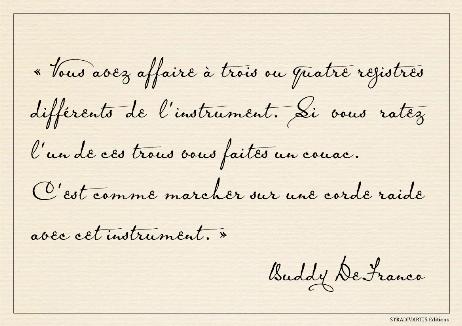 « Vous avez affaire à trois ou quatre registres
différents de l'instrument. Si vous ratez
l'un de ces trous vous faites un couac.
C'est comme marcher sur une corde raide
avec cet instrument. »
Buddy DeFranco
STRADIVARIUS Editions